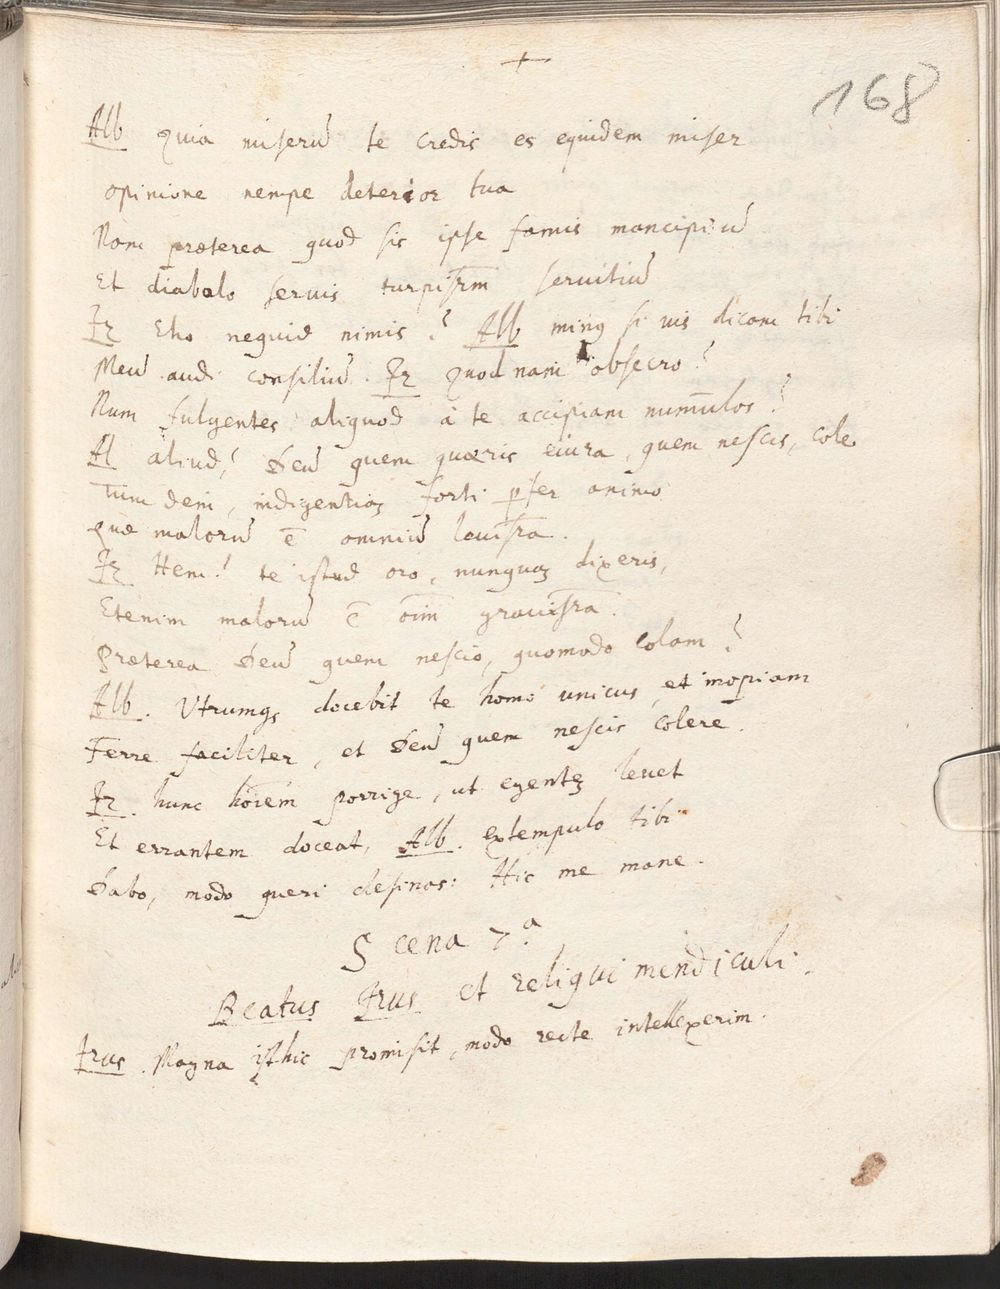 +
168
Alb Quia miserū te credis es equidem miser
opinione nempe deterior tua
Nam præterea quod sis ipse famis mancipiū
Et diabolo seruis turpissm̄ seruitiū
Ir Eho nequid nimis? Alb minq si uis dicam tibi
Meū audi consiliū. Ir Quodnam obsecro?
Num fulgentes aliquod à te accipiam num̄ulos?
Al aliud? Deū quem quæris eiura, quem nescis, cole
Tum dem, indigentiaȝ forti pfer animo
quæ malorū ē omniū leuissra.
Ir Hem! te istud oro, nunquaȝ dixeris,
Etenim malorū ē oim̄ grauissra.
Præterea Deū quem nescio, quomodo colam?
Alb. Vtrumqȝ docebit te homo unicus, et inopiam
Ferre faciliter, et Deū quem nescis colere.
Ir. hunc hoīem porrige, ut egenteȝ leuet
Et errantem doceat, Alb. extempulo tibi
Dabo, modo queri desinas: Hic me mane.
Scena 7.ª
Beatus Irus et reliqui mendiculi.
Irus. Magna isthic promisit, modo recte intellexerim.